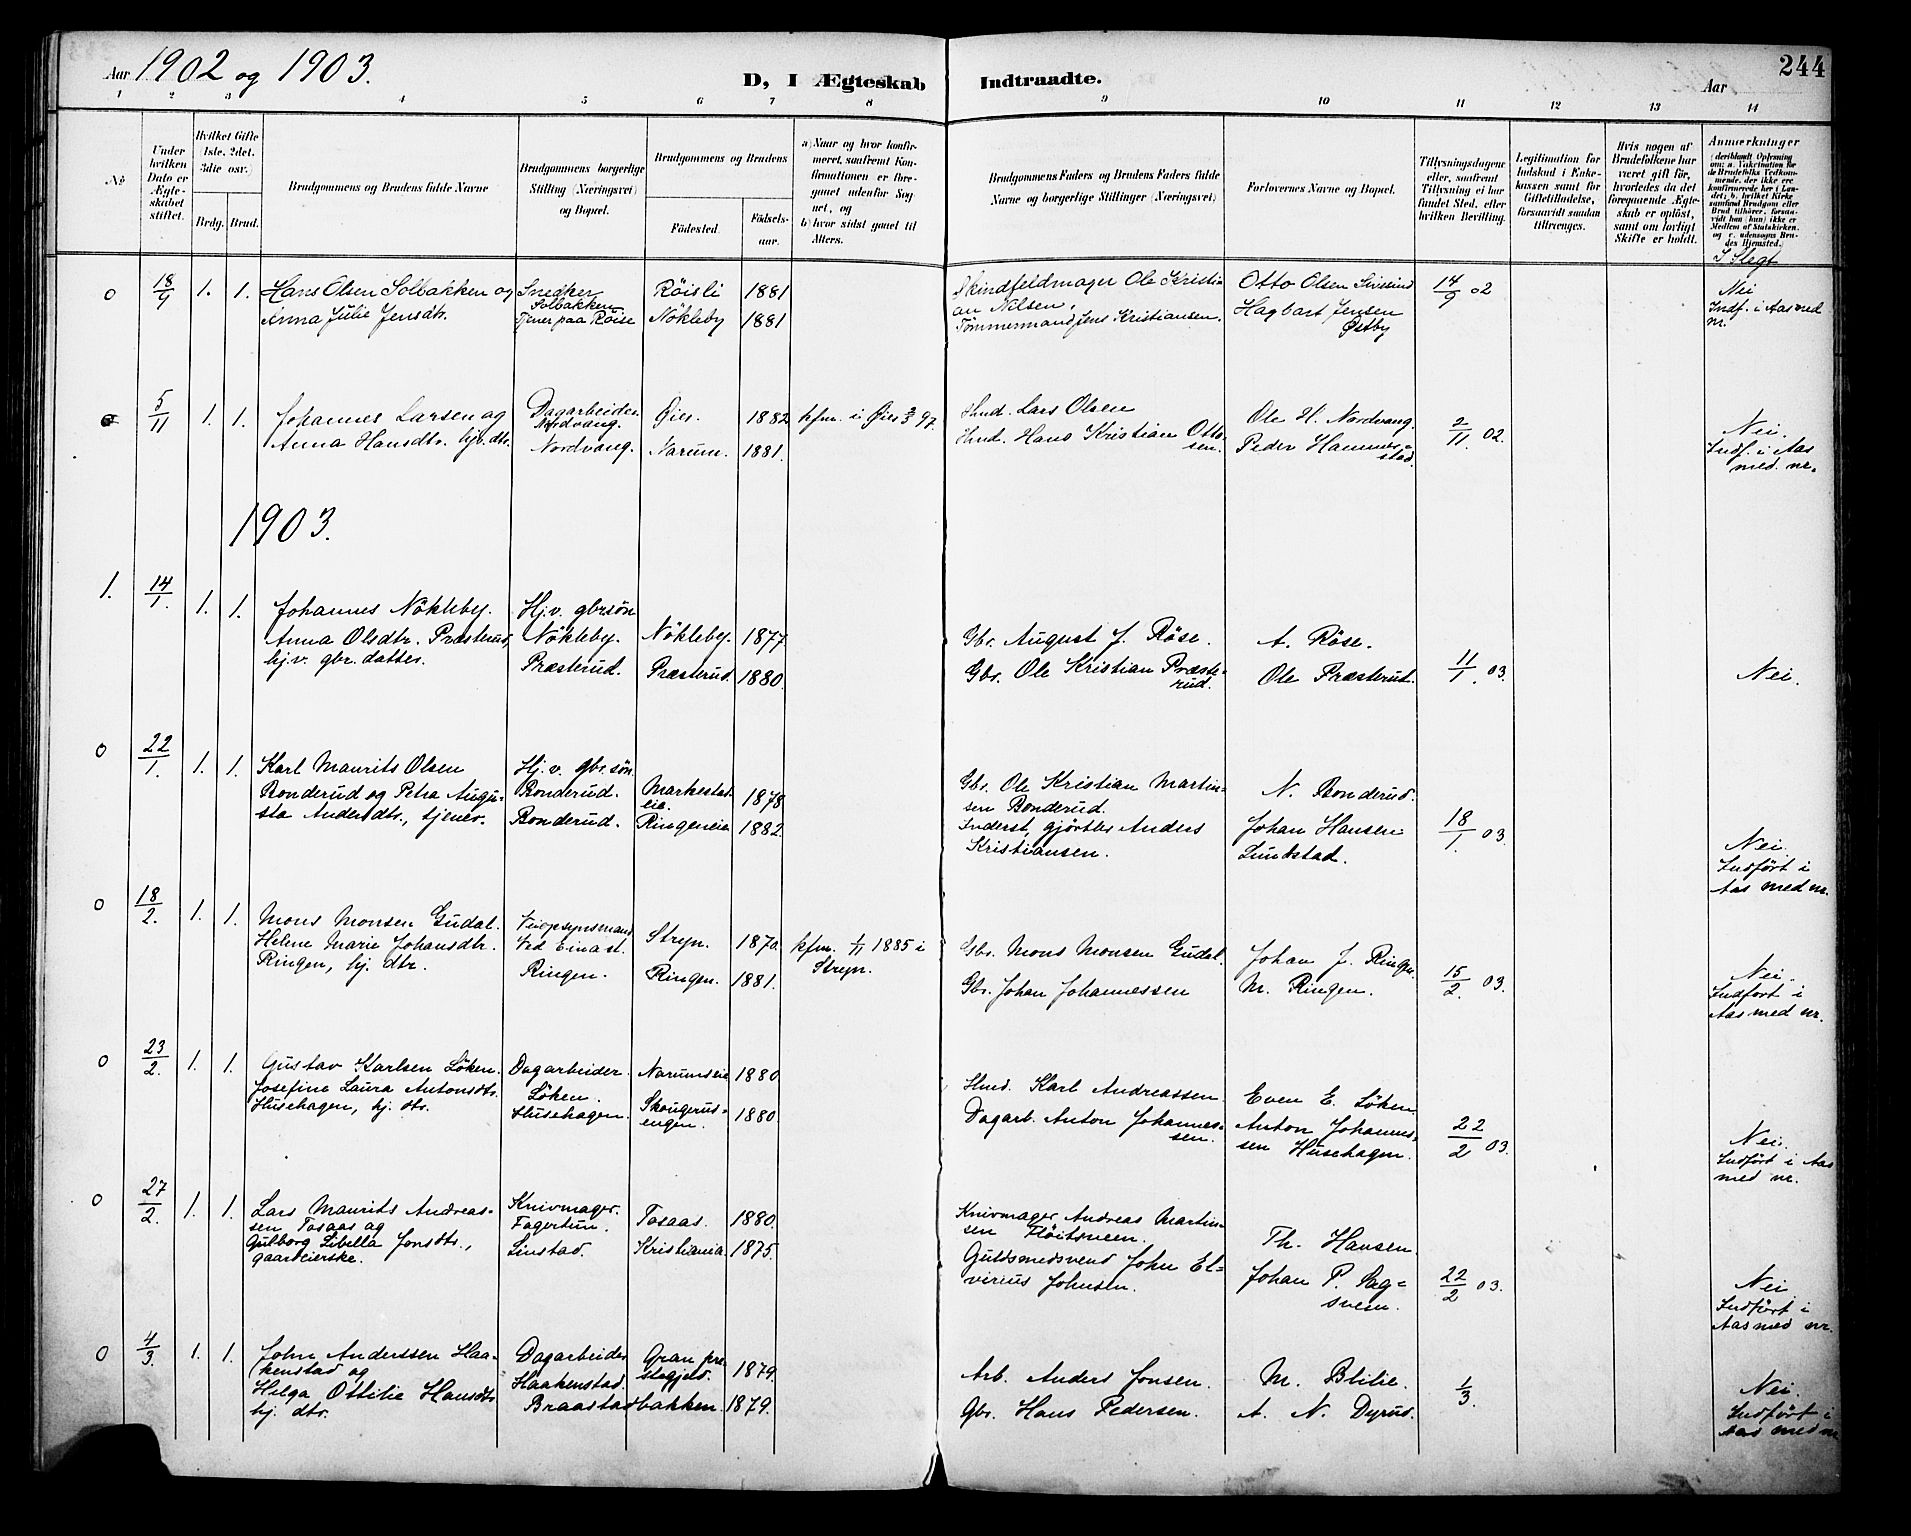 Aar 1902 og 1903.
D, I Ægteskab Indtraadte.
Aar
244
1 2 3 4 5 6 7 8 9 10 11 12 13 14
No
Under hvilken Dato er Ægteskabet stiftet.
Hvilket Gifte 1ste, 2det, 3die osv.)
Brdg. Brud.
Brudgommens og Brudens fulde Navne
Brudgommens borgerlige Stilling (Næringsvei) og Bopæl.
Brudgommens og Brudens
Fødested.
Fødselsaar.
a) Naar og hvor konfirmeret, saafremt Konfirmationen er foregaaet udenfor Sognet, og
b) hvor sidst gaaet til Alters.
Brudgommens Faders og Brudens Faders fulde Navne og borgerlige Stillinger (Næringsvei)
Forlovernes Navne og Bopæl.
Tillysningsdagene eller, saafremt Tillysning ei har fundet Sted, efter hvilken Bevilling.
Legitimation for Indskud i Enkekassen samt for Giftetilladelse, forsaavidt saadan tiltrænges.
Hvis nogen af Brudefolkene har været gift før, hvorledes da det foregaaende Ægteskab er opløst, samt om lovligt Skifte er holdt.
Anmærkninger
I Slegt
0 18/9 1. 1. Hans Olsen Solbakken og
Anna Julie Jensdtr.
Snedker
Solbakken
Tjener paa Røise
Røisli 1881
Nökleby 1881
Skindfeldmager Ole Kristi-
an Nilsen,
Tømmermand Jens Kristiansen.
Otto Olsen Sivesind
Hagbart Jensen
Østby
14/9 02
Nei
Indf. i Aas med
nr.
0 5/11 1. 1. Johannes Larsen og
Anna Hansdtr. hjv. dtr.
Dagarbeider
Nordvang.
Nordvang.
Øier. 1882
Narum. 1881.
kfm. i Øier 97.
Hmd. Lars Olsen
Hmd. Hans Kristian Otto-
sen.
Ole H. Nordvang.
Peder Hammer-
stad.
2/11 02.
Nei.
Indf. i Aas
med nr.
1903.
1. 14/1. 1. 1. Johannes Nökleby.
Anna Olsdtr. Præsterud,
hj.v. gbr. datter.
Hj.v. gbr.søn
Nökleby.
Præsterud.
Nökleby. 1877
Præsterud. 1880.
Gbr. August J. Röse.
Gbr. Ole Kristian Præste-
rud.
A. Röse.
Ole Præsterud.
11/1. 03.
Nei.
0 22/1. 1. 1. Karl Maurits Olsen
Bonderud og Petra Augu-
sta Andersdtr., tjener.
Hj.v. gbr. søn
Bonderud.
Bonderud.
Markestad-
eie. 1878
Ringeneie 1882.
Gbr. Ole Kristian Martin-
sen Bonderud.
Inderst, gjörtler Anders
Kristiansen.
N. Bonderud.
Johan Hansen
Lundstad.
18/1. 03.
Nei.
Indført i
Aas med nr.
0 18/2. 1. 1. Mons Monsen Gudal.
Helene Marie Johansdtr.
Ringen, hj. dtr.
Veiopsynsmand
ved Eina st.
Ringen.
Stryn. 1870.
Ringen. 1881.
kfm. 1/11 1885 i
Stryn.
Gbr. Mons Monsen Gudal.
Gbr. Johan Johannessen
Johan J. Ringen
M. Ringen.
15/2. 03.
Nei.
Indført i
Aas med nr.
0 23/2. 1. 1. Gustav Karlsen Löken.
Josefine Laura Antonsdtr.
Husehagen, hj. dtr.
Dagarbeider.
Löken.
Husehagen.
Narumseie 1880.
Skougerus-
engen. 1880.
Hmd. Karl Andreassen.
Dagarb. Anton Johannes-
sen.
Even E. Löken
Anton Johannes-
sen Husehagen.
22/2 03.
Nei.
Indført i Aas
med nr.
0 27/2. 1. 1. Lars Maurits Andreas-
sen Tosaas og
Gulborg Libella Jonsdtr.,
gaardeierske.
Knivmager.
Fagertun.
Linstad.
Tosaas. 1880.
Kristiania 1875.
Knivmager Andreas Martin-
sen Fløitsveen.
Guldsmedsvend John El-
virius Johnsen.
Th. Hansen.
Johan P. Sag-
sveen.
22/2 03.
Nei
Indført i
Aas med nr.
0 4/3 1. 1. John Anderssen Haa-
kenstad og
Helga Ottilie Hansdtr.
hj. dtr.
Dagarbeider
Haakenstad.
Braastadbakken.
Gran pre-
stegjeld. 1879.
1879.
Arb. Anders Jonsen.
Gbr. Hans Pedersen.
M. Blilie.
A. N. Dyrud.
1/3.
Nei.
Indført i
Aas med nr